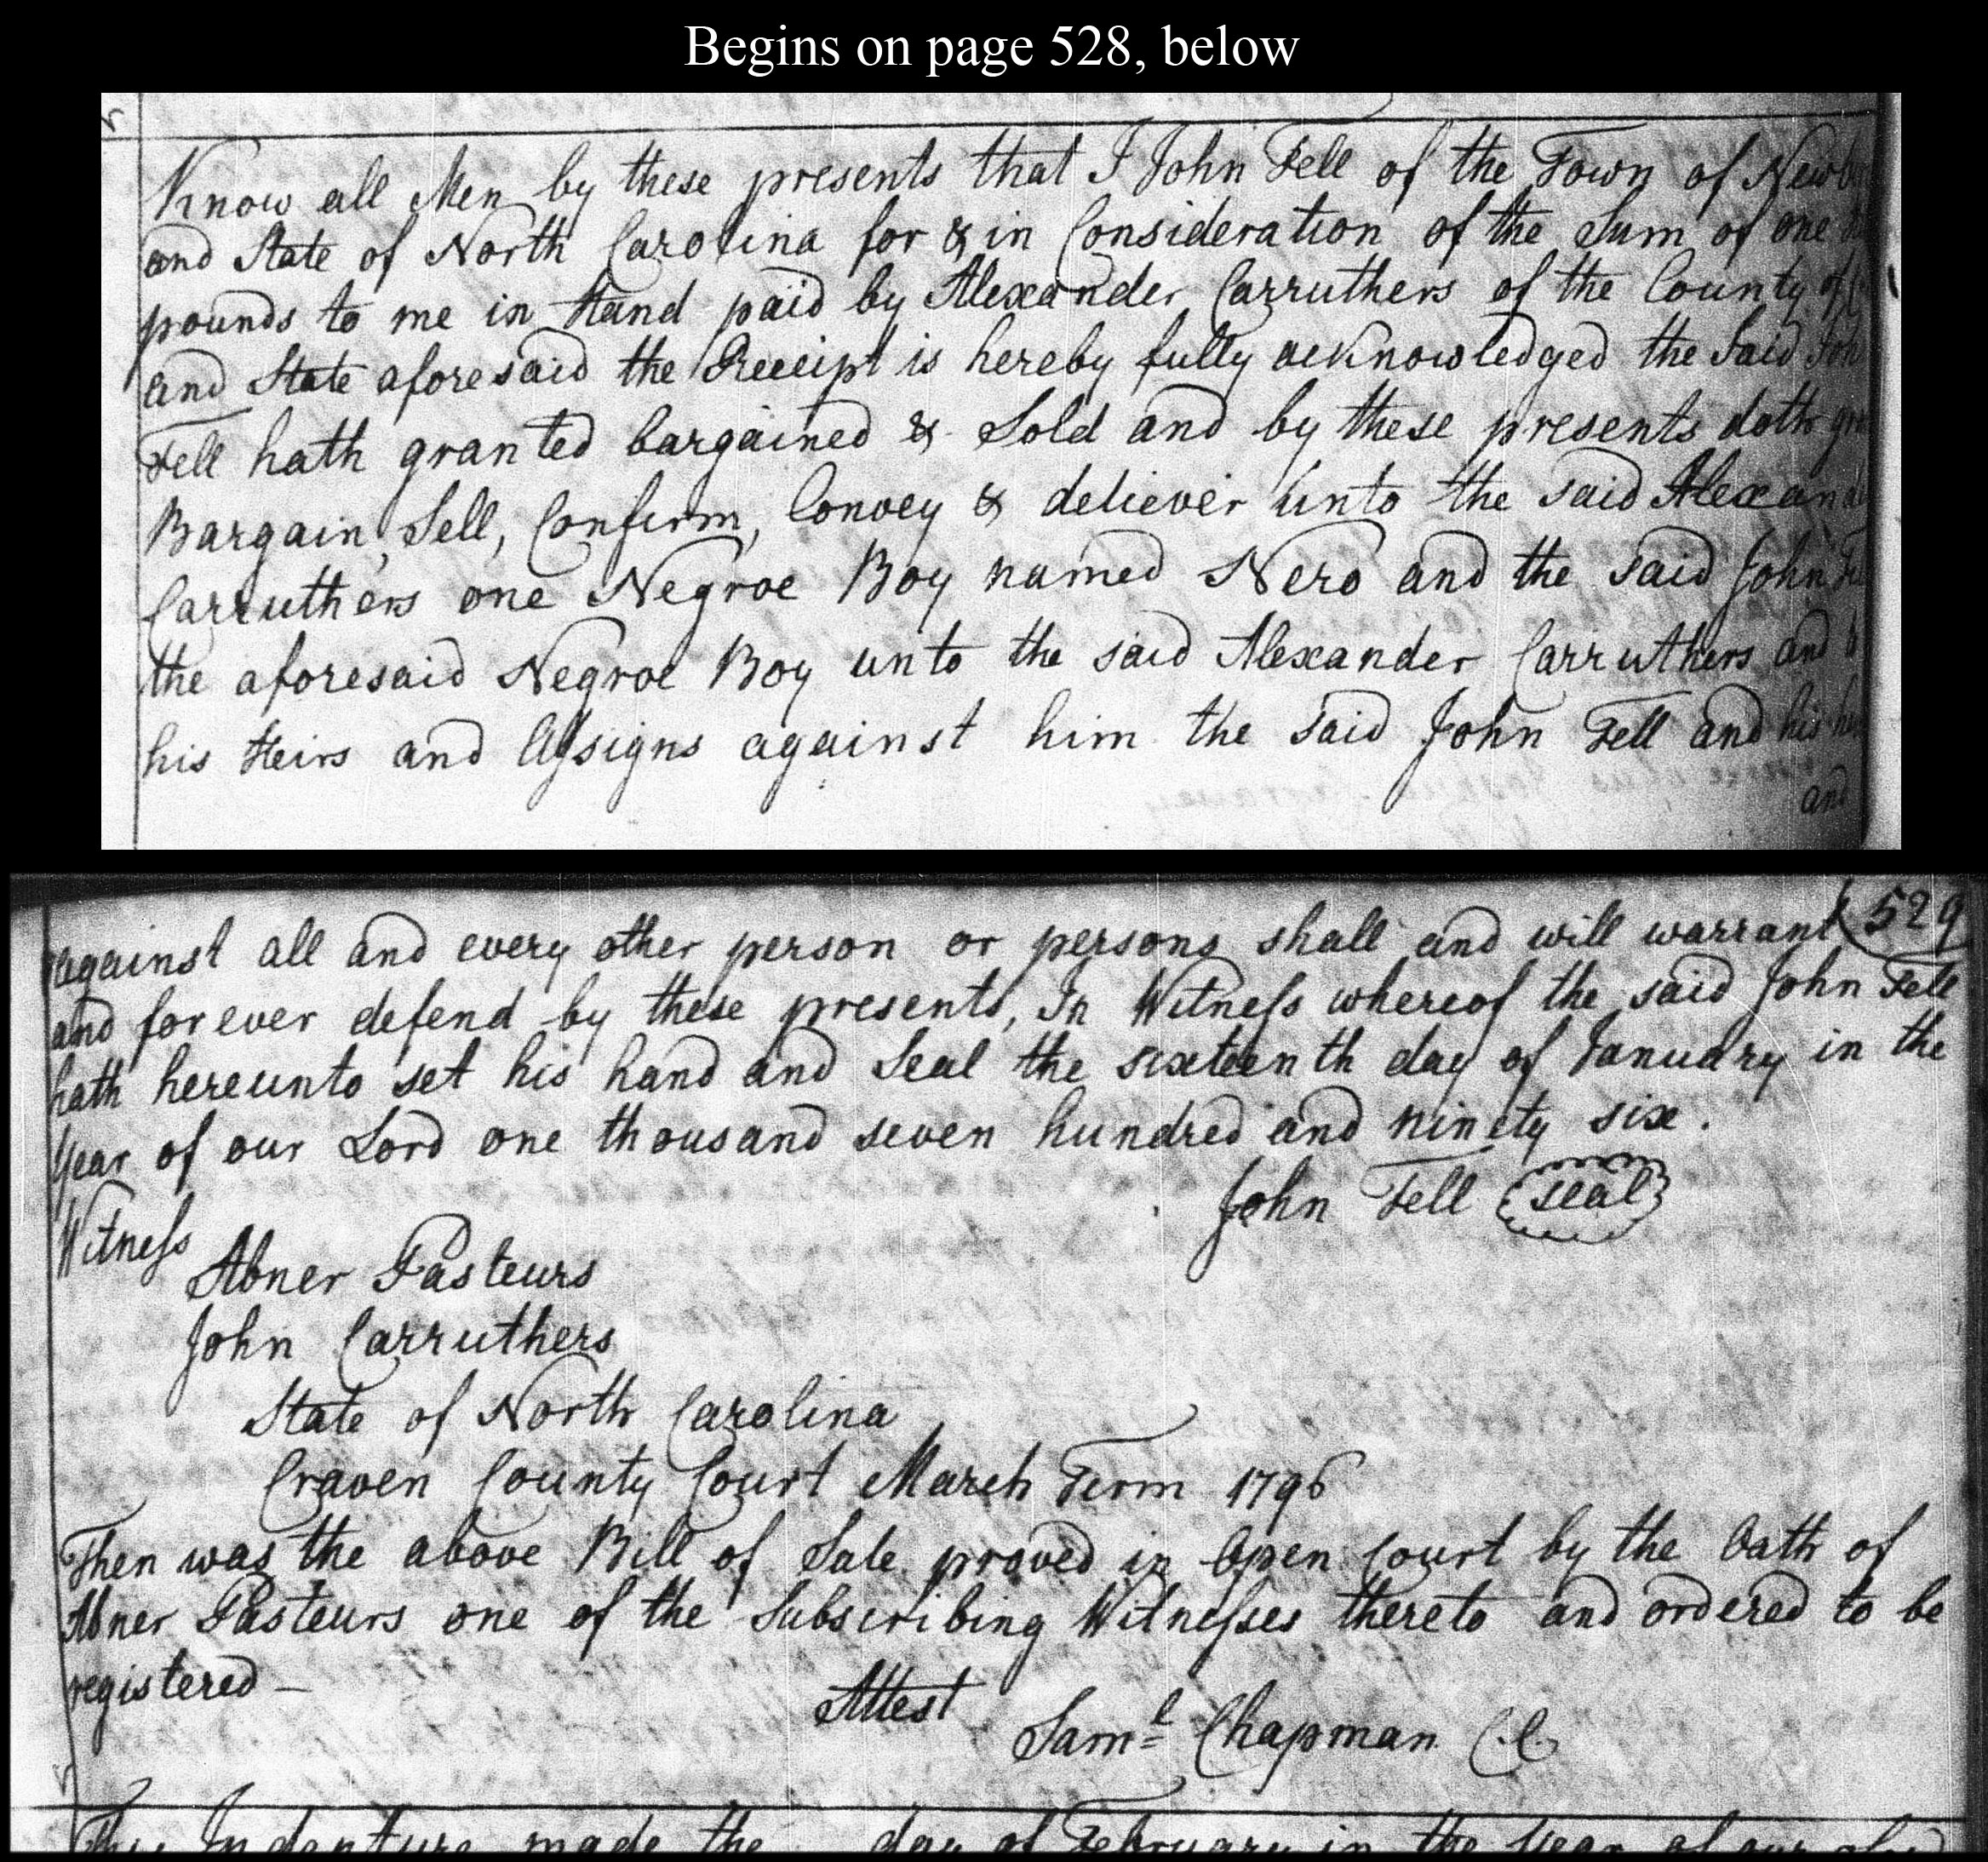 Begins on page 528, below
Know all Men by these presents that I John Fell of the Town of Newb
and State of North Carolina for & in Consideration of the Sum of one
pounds to me in Hand paid by Alexander Carruthers of the County of
and State aforesaid the Receipt is hereby fully acknowledged the Said Joh
Fell hath granted bargained & Sold and by these presents doth gr
Bargain, Sell, Confirm, Convey & deliever unto the said Alexand
Carruthers one Negroe Boy named Nero and the said John
the aforesaid Negroe Boy unto the said Alexander Carruthers and
his Heirs and Assigns against him the said John Fell and his he
and
529
against all and every other person or persons shall and will warrant
and forever defend by these presents, In Witness whereof the said John Fell
hath hereunto set his hand and Seal the sixteenth day of January in the
Year of our Lord one thousand seven hundred and ninety six.
John Fell seal
Witness
Abner Pasteurs
John Carruthers
State of North Carolina
Craven County Court March Term 1796
Then was the above Bill of Sale proved in Open Court by the Oath of
Abner Pasteurs one of the Subscribing Witnesses thereto and ordered to be
registered -
Attest Saml Chapman C.C.
This Indenture made the day of February in the Year of our